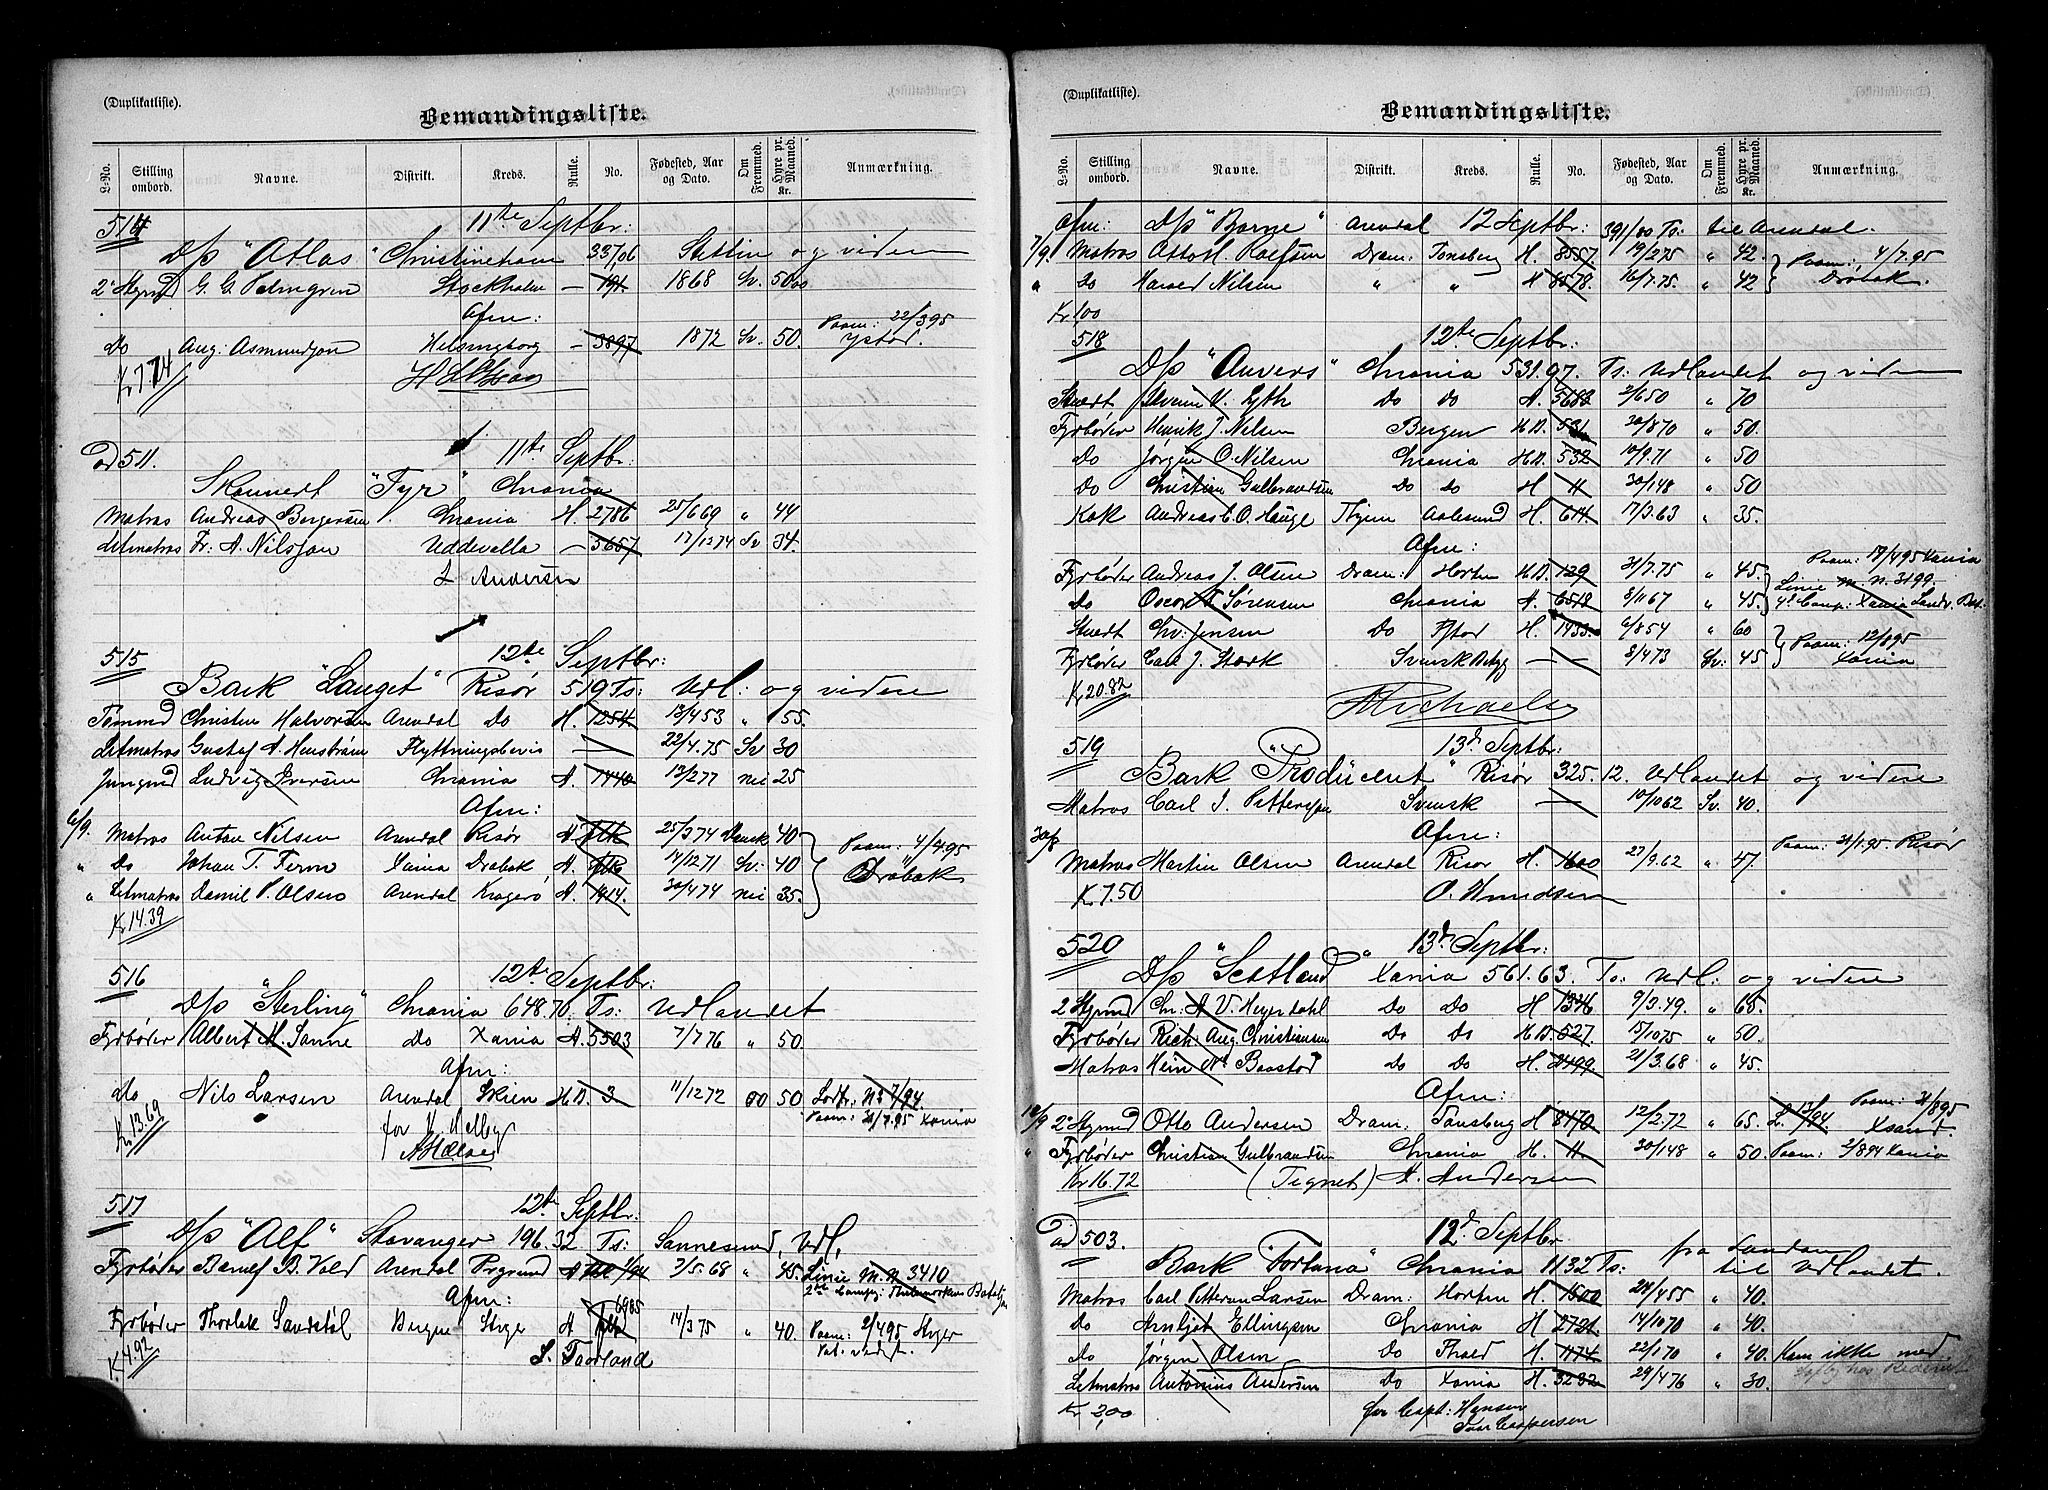 (Duplikatliste).
Bemandingsliste.
L-No. Stilling ombord. Navne. Distrikt. Kreds. Rulle. No. Fødested, Aar og Dato. Om Fremmed. Hyre pr. Maaned. Kr. Anmærkning.
514 11te Septbr:
D/s "Atlas" Christineham 33,06 Stettin og videre
2 Styrmd G. G. Palmgren Stockholm — 191. 1868 Sv. 50.00
Afm:
Do Aug: Asmundson Helsingborg — 3897 1872 Sv. 50. Paam: 22/3 95 Ystad.
Kr 7.74
ad 511. 11te Septbr:
Skonnert "Tyr" Chrania
Matros Andreas Bergersen Chrania H. 2786 25/6 69 " 44
Letmatros Fr. A. Nilsson Uddevalla — 3657 17/12 74 Sv 34.
L Andersen
515 12te Septbr:
Bark "Lauget" Risør 519 Ts: Udl: og videre
Tømmd Christen Halvorsen Arendal Do H. 1254 13/4 53 " 55.
Letmatros Gustaf A. Flyttningsbevis — 22/4.75 Sv 30
Jungmd Ludvig Iversen Chrania A. 1440 13/2 77 nei 25
Afm:
6/9. Matros Anton Nilsen Arendal Risør A. 25/3 74 Dansk 40 Paam: 4/4.95
" Do Johan T. Ferm Xania Drøbak A. 14/12.71 Sv: 40 Drøbak
" Letmatros Daniel P. Olsen Arendal Kragerø A. 1914. 30/4 74 nei 35.
Kr 14.39
516 12te Septbr:
D/s "Sterling" Chrania 648.70. Ts: Udlandet
Fyrbøder Albert M. Sanne do Xania A. 5503 7/7 76 " 50.
Afm:
do Nils Larsen Arendal Skien HD. 3 11/12 72 00 50 Lodt: No 7/94.
Paam: 31/7.95 Xania
Kr 13.69 for H. Melby
517 12te Septbr.
D/s "Alf" Stavanger 196.32 Ts: Sannesund, Udl,
Fyrbøder B. Vold Arendal Prsgrund A 1/94 3/5.68 " 45. Linie M. N. 3410
Afm: 2den Compg: Thelemarkens Bataljon
Fyrbøder Thorlak Sandstøl Bergen A 6985 14/3 75 " 40. Paam: 2/4 95
Kr 4.92 S. Taarland
(Duplikatliste).
Bemandingsliste.
L-No. Stilling ombord. Navne. Distrikt. Kreds. Rulle. No. Fødested, Aar og Dato. Om Fremmed. Hyre pr. Maaned. Kr. Anmærkning.
Afm: D/s "Barne" Arendal 12 Septbr: 391/00 Ts: til Arendal.
7/9. Matros Otto H. Roefsen Dram: Tønsberg H. 8557 19/2 75 " 42. Paam: 4/7.95
" Do Harald Nilsen " " A 8578. 16/7.75. " 42 Drøbak.
Kr 1,00
518 12te Septbr:
D/s "Anvers" Chrania 531.97. Ts: Udlandet og videre
Stuert V. Lyth Do do A. 5683 2/6 50 " 70
Fyrbøder Henrik J. Nilsen Bergen HD. 531 30/8 70 " 50.
Do Jørgen O. Nilsen Chrania HD. 532 10/9.71 " 50
Do Christian Gulbrandsen Do do H 11 30/1 48 " 50
Kok Andreas C. O. Hauge Thjem Aalesund H. 614. 17/3.63 " 35.
Afm:
Fyrbøder Andreas J. Olsen Dram: Horten HD. 129 31/7.75 " 45. Paam: 19/4 95 Xania
Do Oscar Sørensen Chrania A. 6518 8/11 67 " 45. Linie M. N. 3199.
4de Comp: Xania Landv. Bat.
Stuert Chr: Jensen Do H. 1433. 6/8 54 " 60 Paam: 12/8 95
Fyrbøder Carl J. Stark Svensk — 8/4 73 Sv: 45 Xania
Kr 20.82
519 13de Septbr:
Bark "Producent" Risør 325.12. Udlandet og videre
Matros Carl J. Pettersson Svensk — 10/10 62 Sv. 40.
30/8 Afm:
Matros Martin Olsen Arendal Risør H. 1600 27/9.62 " 47. Paam: 31/1.95 Risør
Kr 7.50 O. Knudsen
520 13de Septbr:
D/s "Scotland" Xania 561.63. Ts: Udl: og videre
2 Styrmd Chr: A V. Heyerdahl Do Do H 1346 9/3.49. " 65.
Fyrbøder Rich. Aug. Christiansen Do Do HD. 527. 15/10 75 " 50.
Matros Hein N. Baastod Do Do H. 2499 21/3.68 " 45.
Afm:
12/9 2 Styrmd Otto Andersen Dram: Tønsberg H 8470 12/2.72 " 65. L. 13/94 Paam: 31/8 95 Xsand.
" Fyrbøder Christian Gulbrandsen Chrania H. 11. 30/1 48 " 50. Paam: 2/8 94 Xania
Kr 16.72 (Tegnet) A. Andersen
ad 503. 12te Septbr.
Bark "Fortuna" Chrania 1132 Ts: fra London til Udlandet.
Matros Carl Petterson Larsen Dram: Horten H. 1500 24/4 55 " 40.
do Arnljot Ellingsen Chrania H 2721. 14/10 70 " 40.
do Jørgen Olsen Do Fhald H. 1174. 22/1 70 " 40. Kom ikke med
Letmatros Antonius Andersen Do Xania H. 3232 29/4 76 " 30.
Kr 2,00 for Capt: Hansen
Ivar Caspersen